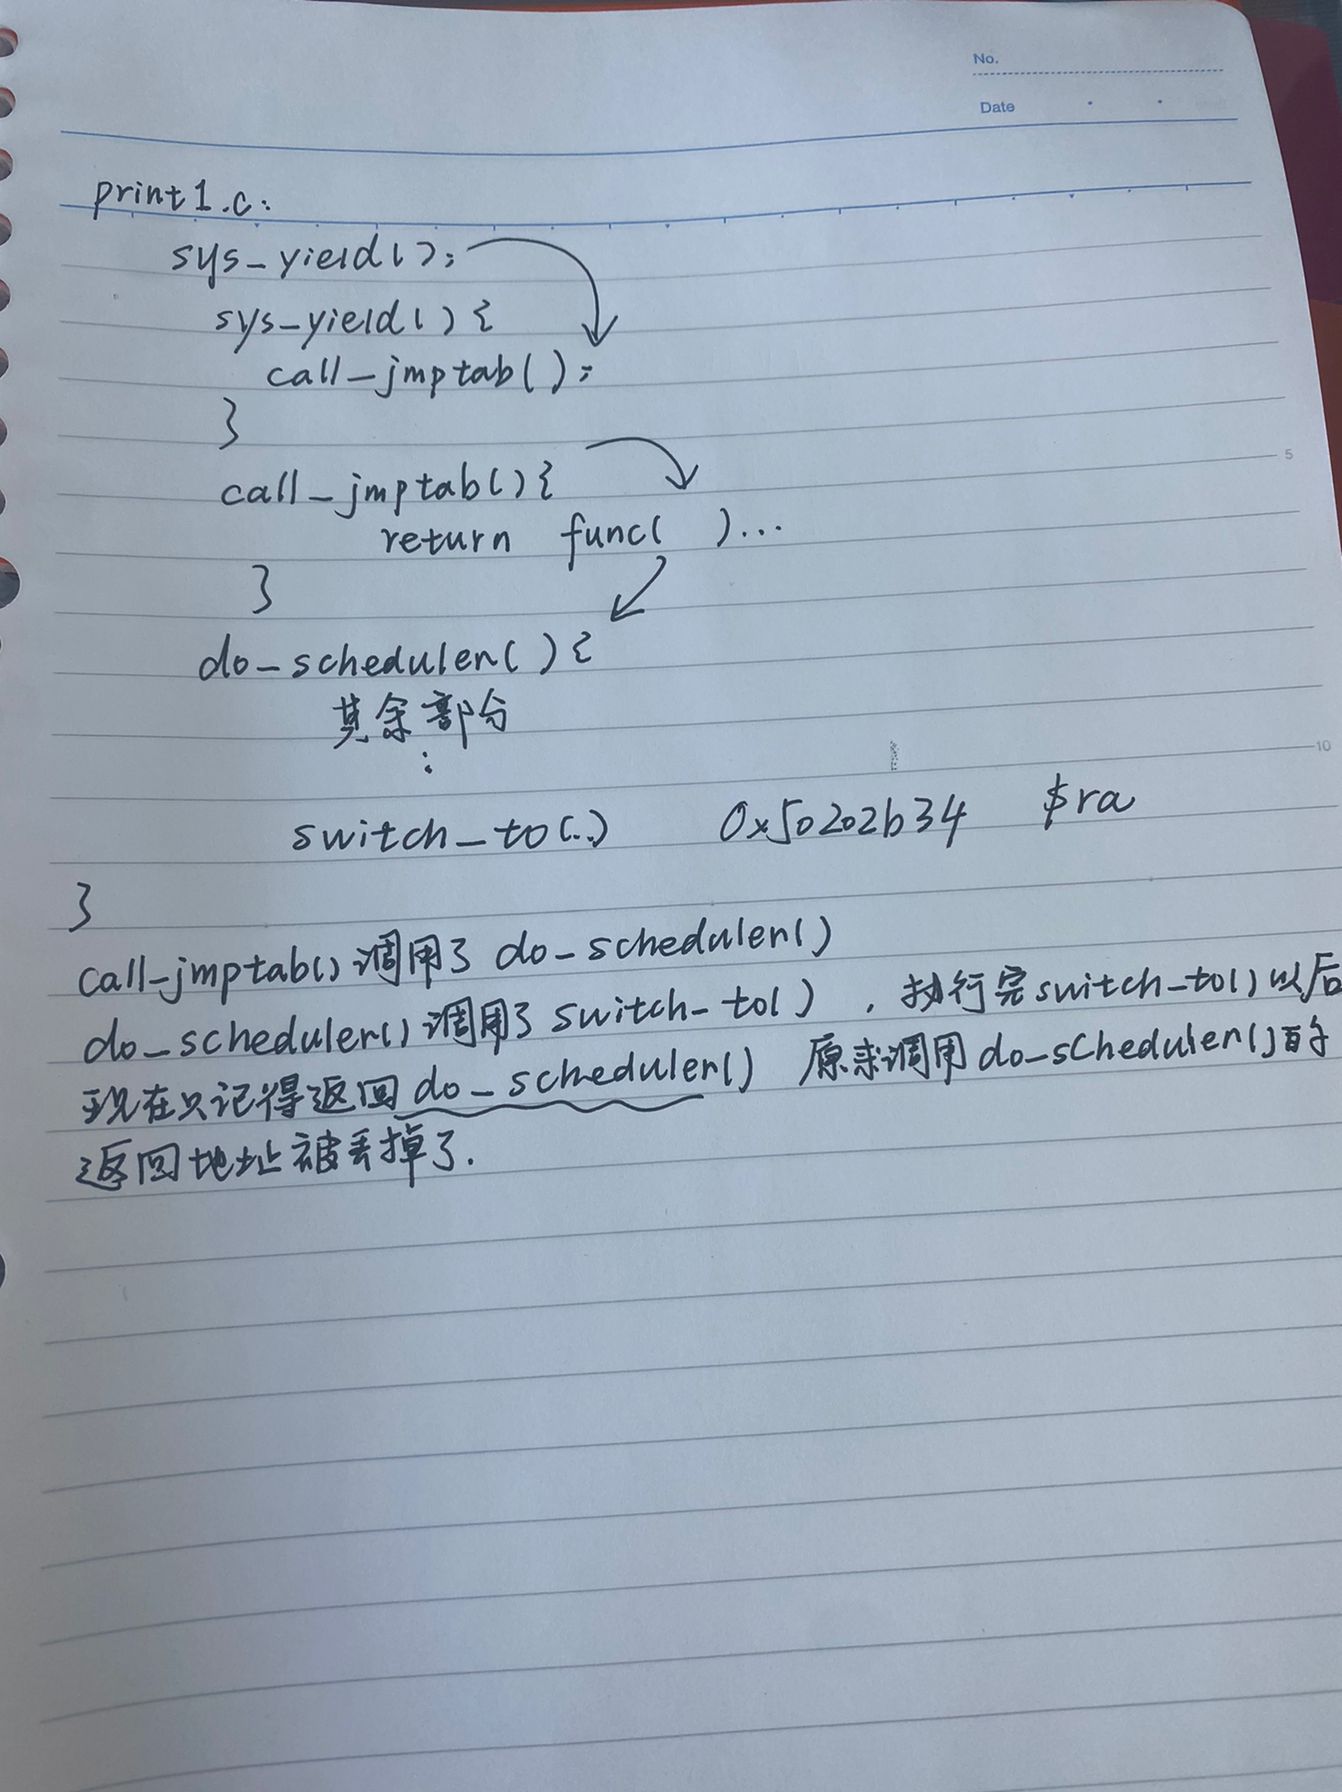 No.
Date
print1.c:
sys_yield();
sys_yield(){
call_jmptab();
}
call_jmptab(){
5
return func( )...
}
do_scheduler(){
其余部分
⋮
10
switch_to(..) 0x50202b34 $ra
}
call_jmptab()调用了 do_scheduler()
do_scheduler()调用了 switch_to() ，执行完switch_to()以后
现在只记得返回do_scheduler() 原来调用do_scheduler()的
返回地址被丢掉了.